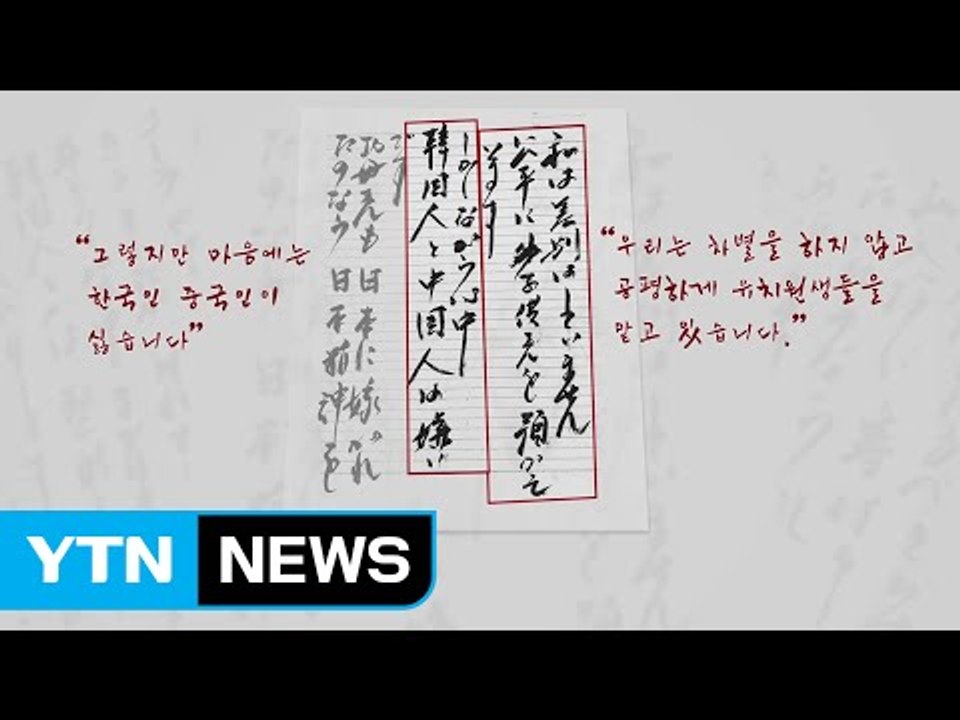 “그렇지만 마음에는
한국인 중국인이
싫습니다”
私は差別はしていません
公平に子供さんを預かって
います
しかしながら心中
韓国人と中国人は嫌い
です
お母さんも日本に嫁がれ
たのなら日本精神を
“우리는 차별을 하지 않고
공평하게 유치원생들을
맡고 있습니다.”
YTN NEWS